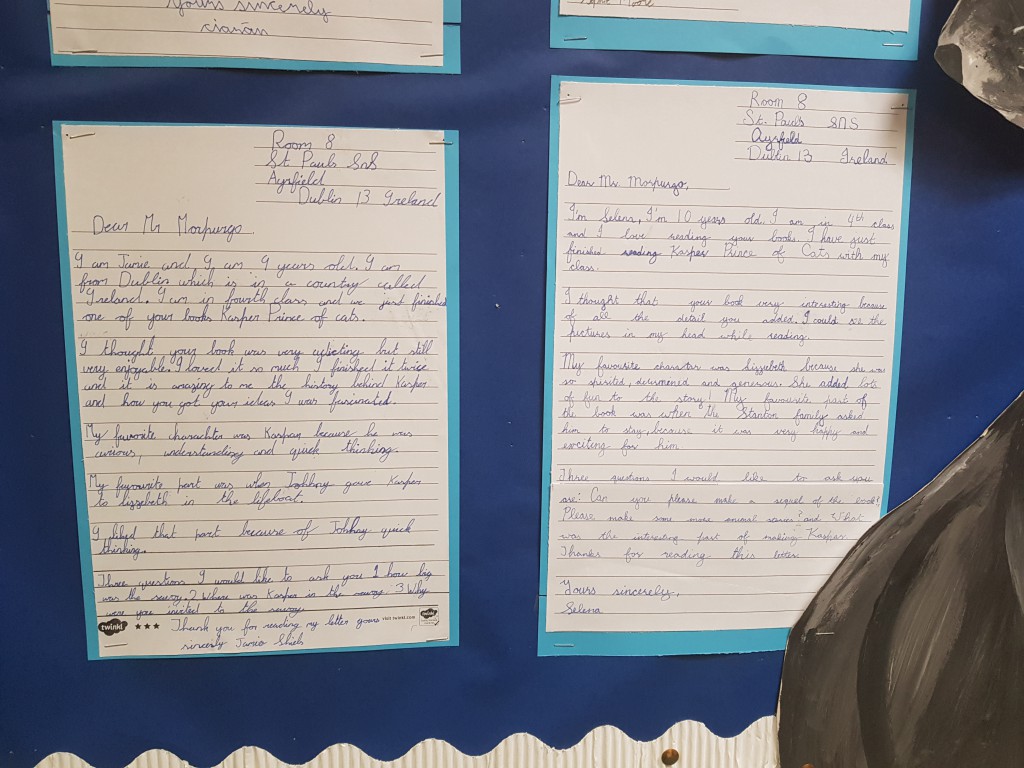 Yours sincerely
ciarán
Sophie Moore
Room 8
St Pauls SnS
Ayrfield
Dublin 13 Ireland
Dear Mr Morpurgo
I am Jamie and I am 9 years old. I am
from Dublin which is in a country called
Ireland. I am in fourth class and we just finished
one of your books Kasper Prince of cats.
I thought your book was very but still
very enjoyable. I loved it so much I finished it twice
and it is amazing to me the history behind Kasper
and how you got your ideas I was fascinated.
My favorite charachter was Kaspar because he was
curious, understanding and quick thinking.
My favourite part was when Johhny gave Kasper
to lizzybeth in the lifeboat.
I liked that part because of Johhny quick
thinking.
Three questions I would like to ask you 1 how big
was the savoy. 2 Where was Kasper in the savoy 3 Why
were you invited to the savoy
twinkl Thank you for reading my letter yours visit twinkl.com twinkl
sincerly Jamie Shiels
Room 8
St. Paul's SNS
Ayrfield
Dublin 13 Ireland
Dear Mr. Morpurgo,
I'm Selena, I'm 10 years old. I am in 4th class
and I love reading your books. I have just
finished reading Kasper Prince of Cats with my
class.
I thought that your book very interesting because
of all the detail you added. I could see the
pictures in my head while reading.
My favourite character was lizziebeth because she was
so spirited, determened and generous. She added lots
of fun to the story! My favourite part of
the book was when the Stanton family asked
him to stay, because it was very happy and
exciting for him
Three questions I would like to ask you
are: Can you please make a sequel of the book?
Please make some more animal stories? and What
was the interesting part of making Kasper.
Thanks for reading this letter
Yours sincerely,
Selena